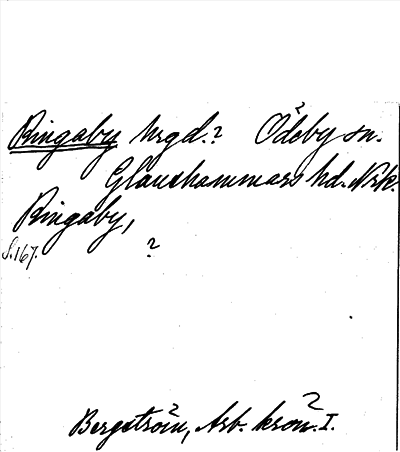 Ringaby hrgd.? Ödeby sn.
Glanshammars hd. Nrk.
Ringaby,
S. 167. ?
Bergström, Arb. krön. I.